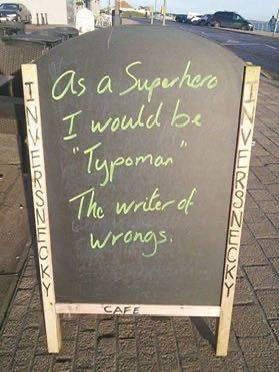 As a Superhero
I would be
"Typoman"
The writer of
wrongs.
INVERSNECKY
INVERSNECKY
CAFE